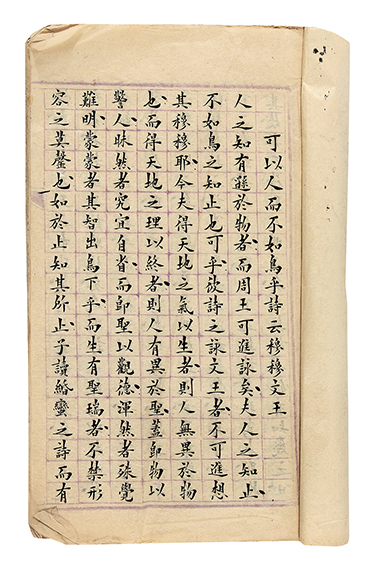 可以人而不如鳥乎詩云穆穆文王
人之知有遜於物者而周王可進詠矣夫人之知止
不如鳥之知止也可乎欲詩之詠文王者不可進想
其穆穆耶今夫得天地之氣以生者則人無異於物
也而得天地之理以終者則人有異於聖蓋即物以
警人昧然者究宜自省而即聖以觀德渾然者殊覺
難明蒙蒙者其智出鳥下乎而生有聖瑞者不禁形
容之莫罄也如於止知其所止子讀緡蠻之詩而有